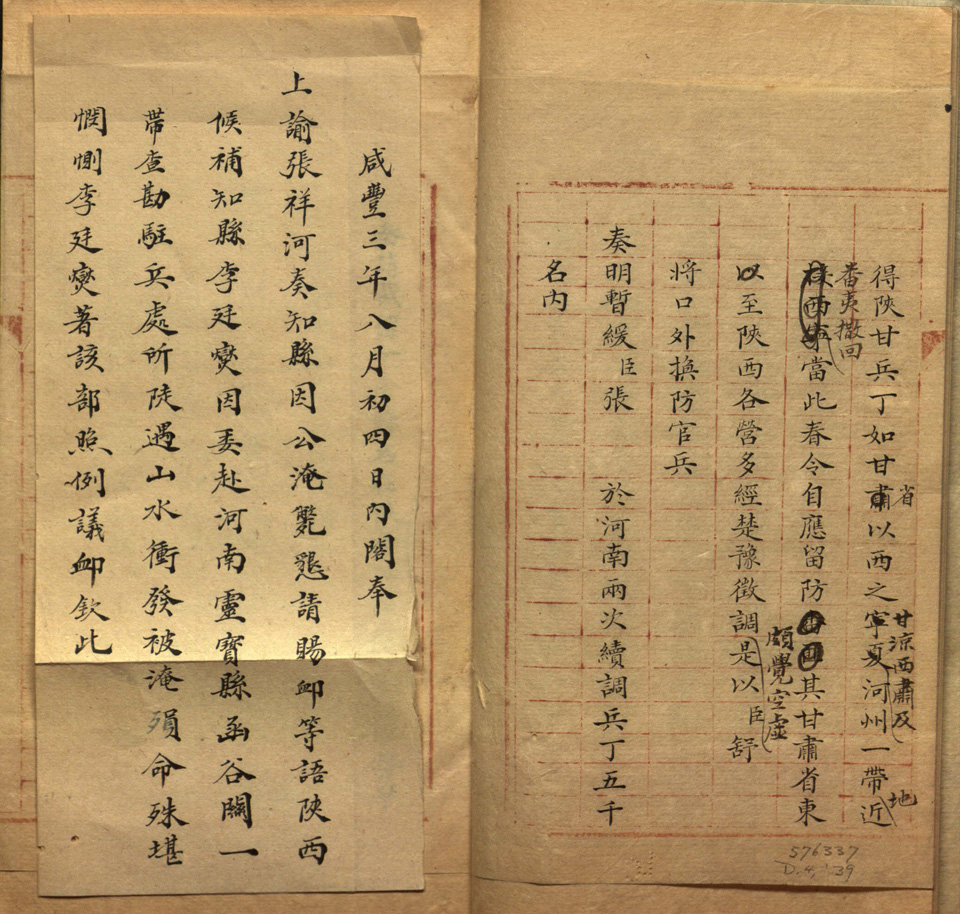 得陝甘兵丁如甘肅省以西之寧夏甘涼西肅及河州一帶近地
番夷撒回
西當此春令自應留防其甘肅省東
以至陝西各營多經楚豫徵調是以臣舒
頗覺空虛
將口外換防官兵
奏明暫緩臣張 於河南兩次續調兵丁五千
名內
咸豐三年八月初四日內閣奉
上諭張祥河奏知縣因公淹斃懇請賜卹等語陝西
候補知縣李廷燮因委赴河南靈寶縣函谷關一
帶查勘駐兵處所陡遇山水衝發被淹殞命殊堪
憫惻李廷燮著該部照例議卹欽此
576337
D.4,'39